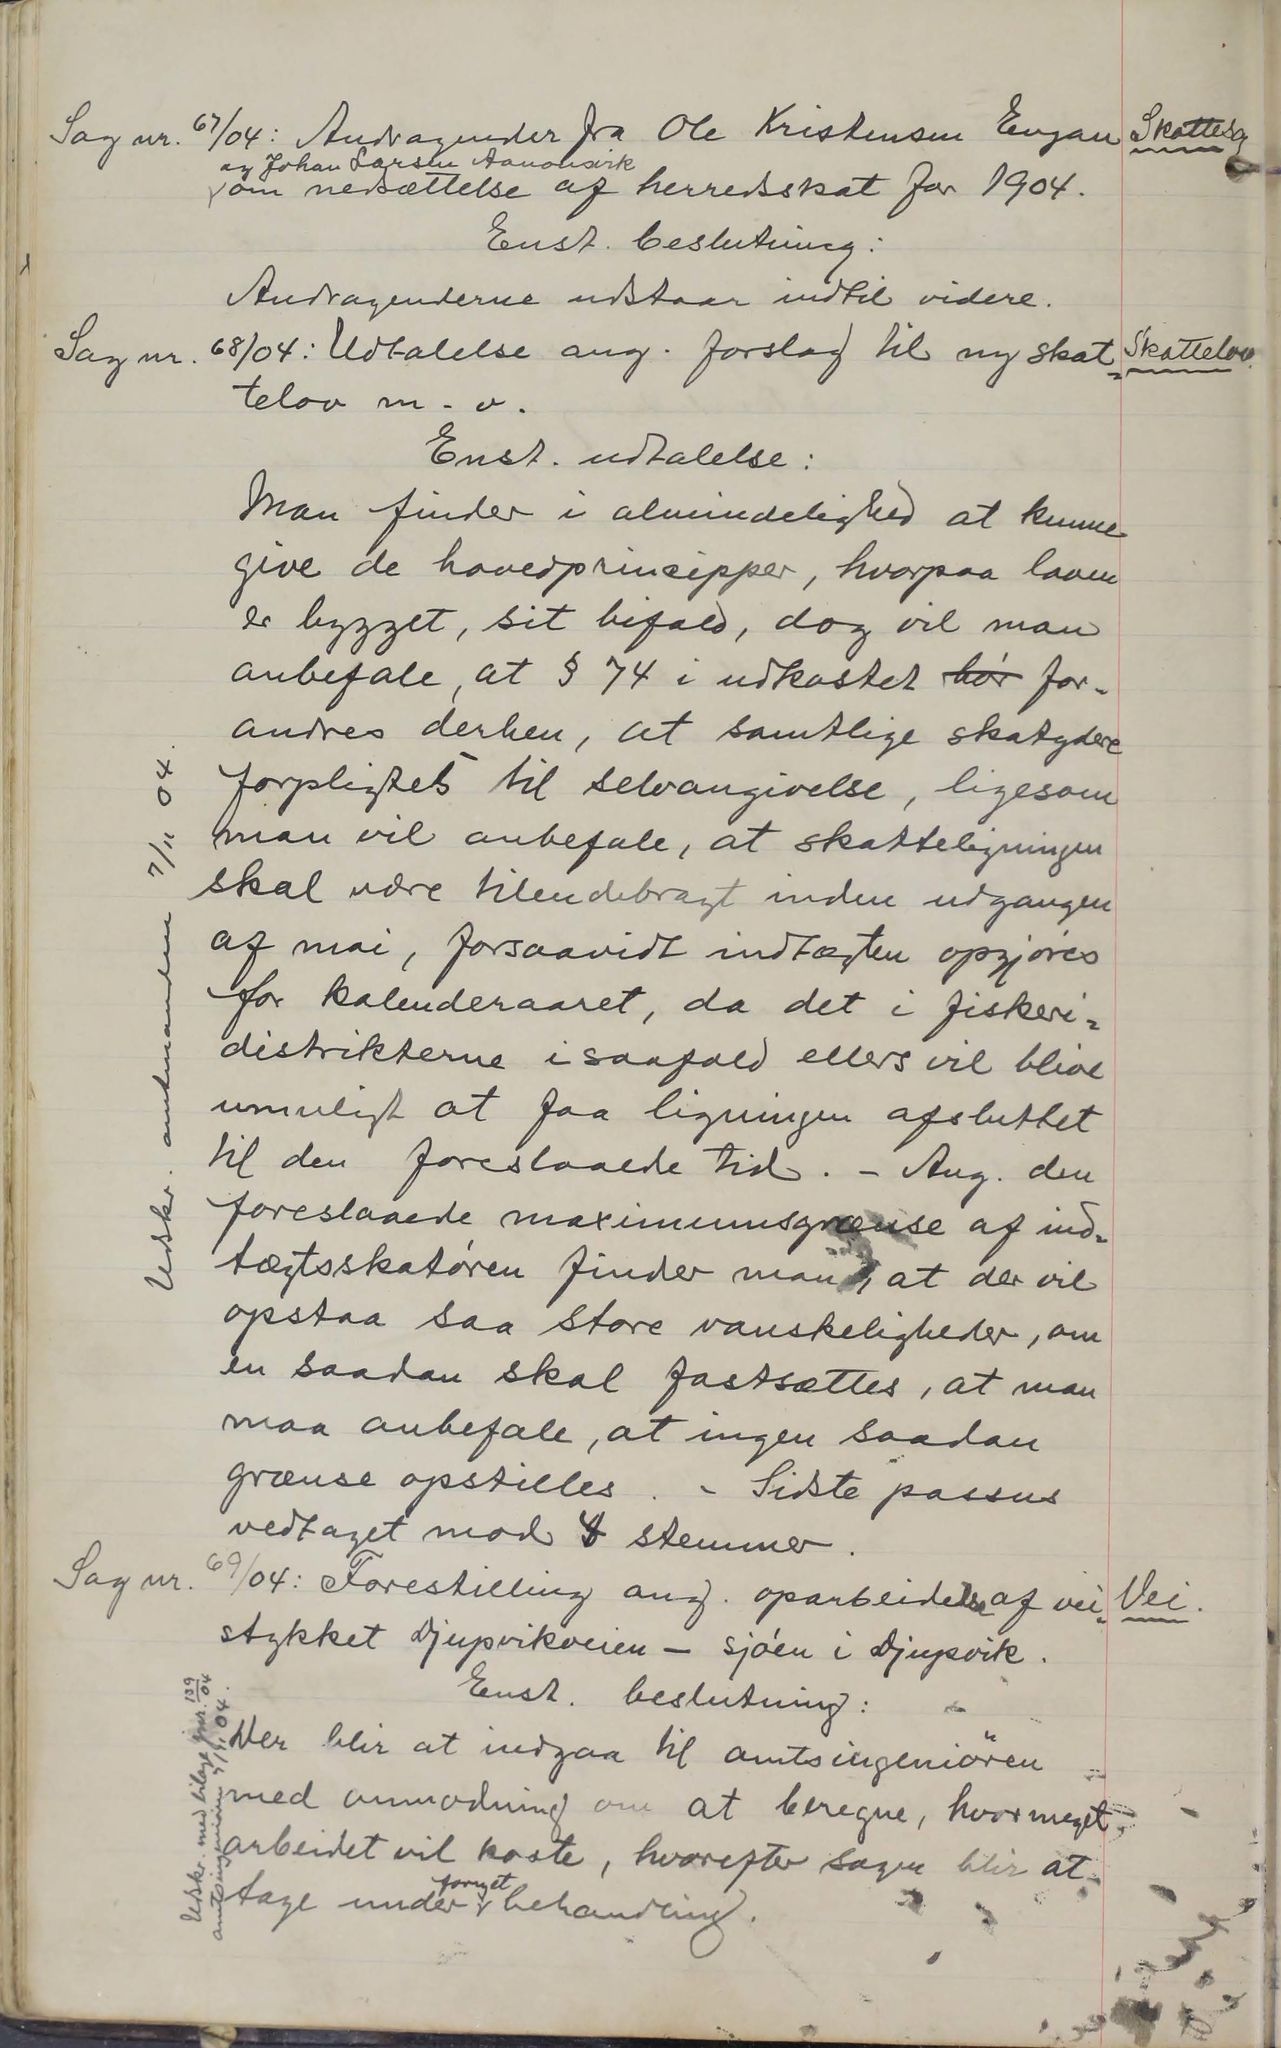 Sag nr. 67/04: Andragender fra Ole Kristensen Engan Skattesag
og Johan Larsen
om nedsættelse af herredsskat for 1904.
Enst. beslutning:
Andragenderne udstaar indtil videre.
Sag nr. 68/04: Udtalelse ang. forslag til ny skat- Skattelov.
telov m. v.
Enst. udtalelse:
Man finder i almindelighed at kunne
give de hovedprincipper, hvorpaa loven
er bygget, sit bifald, dog vil man
anbefale, at § 74 i udkastet bør for-
andres derhen, at samtlige skatydere
forpligtes til selvangivelse, ligesom
man vil anbefale, at skatteligningen
skal være tilendebragt inden udgangen
af mai, forsaavidt indtægten opgjöres
for kalenderaaret, da det i fiskeri-
distrikterne i saafald ellers vil blive
umuligt at faa ligningen afsluttet
til den foreslaaede tid. - Ang. den
foreslaaede maximumsgrænse af ind-
tægtsskatören finder man, at der vil
opstaa saa store vanskeligheder, om
en saadan skal fastsættes, at man
maa anbefale, at ingen saadan
grænse opstilles. - Sidste passus
vedtaget mod stemmer.
Udskr. amtmanden 7/11 04.
Sag nr. 69/04: Forestilling ang. oparbeidelse af vei- Vei.
stykket Djupvikveien - sjöen i Djupvik.
Enst. beslutning:
Der blir at indgaa til amtsingeniören
med anmodning om at beregne, hvormeget
arbeidet vil koste, hvorefter sagen blir at
tage under fornyet behandling.
Udskr. med bilage jnr. 139/04
amtsingeniören 7/11 04.